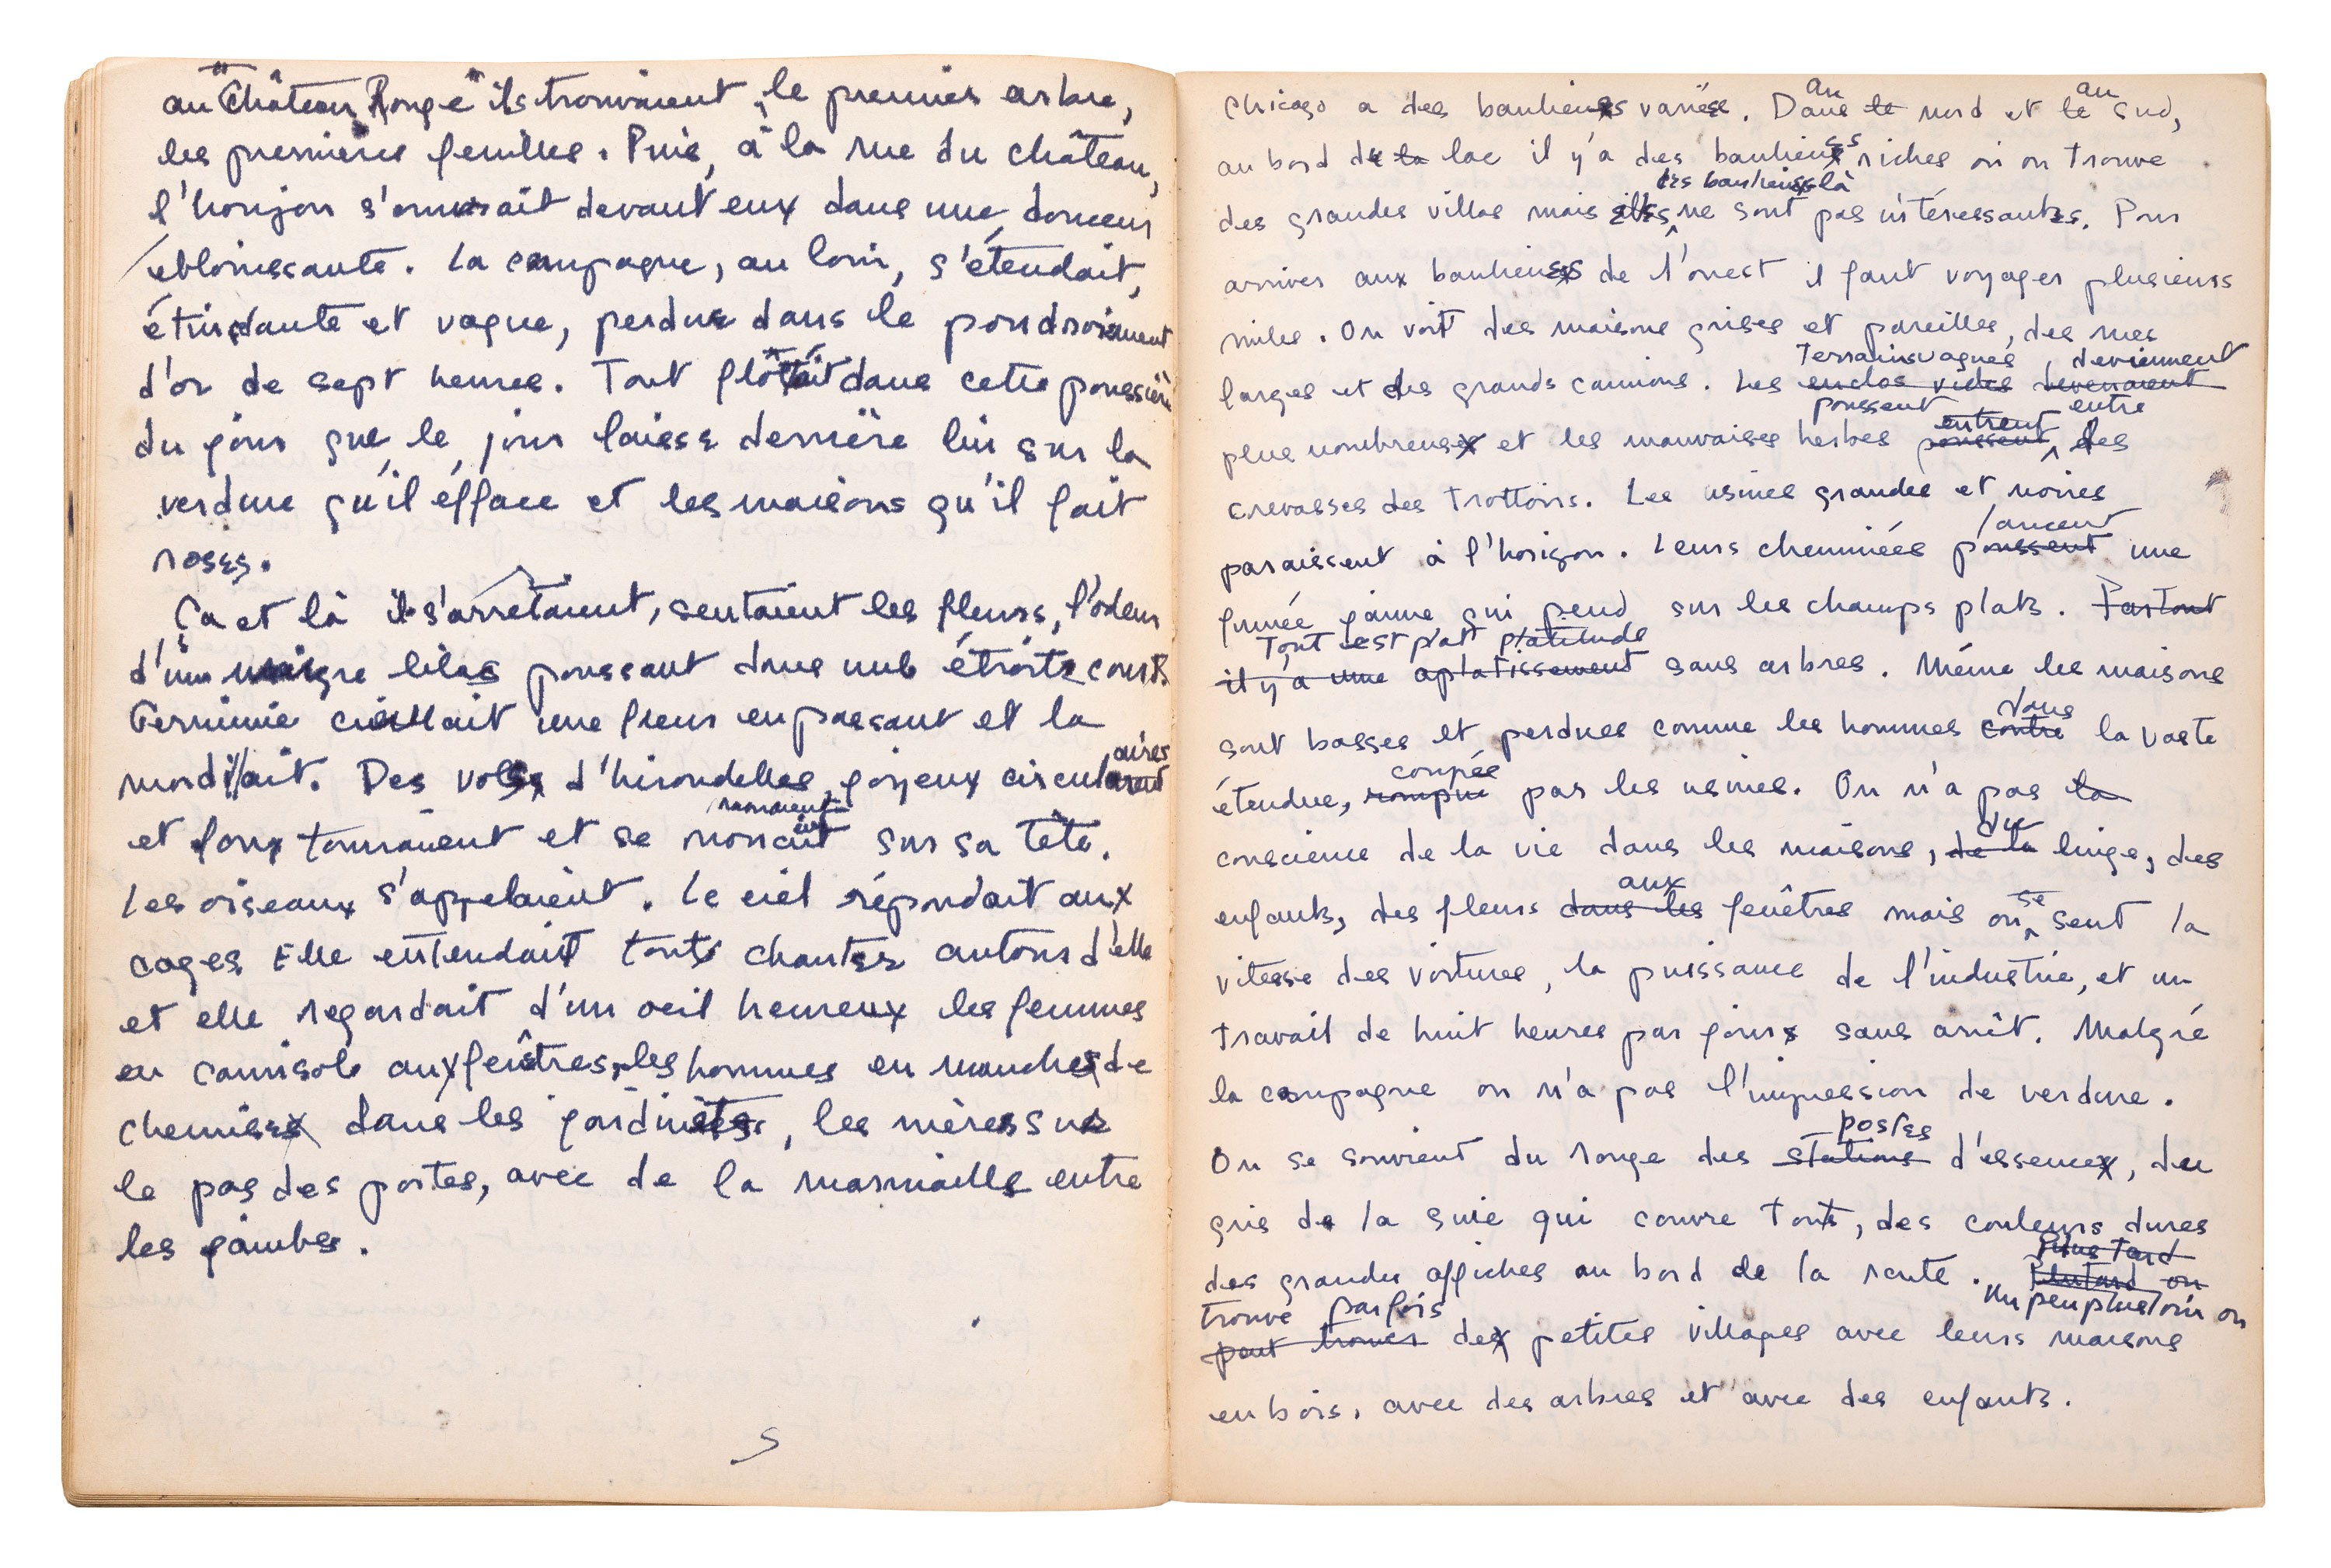 au "Château Rouge" ils trouvaient le premier arbre,
les premières feuilles. Puis, à la rue du château,
l'horizon s'ouvrait devant eux dans une douceur
éblouissante. La campagne, au loin, s'étendait,
étincelante et vague, perdue dans le poudroiement
d'or de sept heures. Tout flottait dans cette poussière
du jour que le jour laisse derrière lui sur la
verdure qu'il efface et les maisons qu'il fait
roses.
Ça et là ils s'arrêtaient, sentaient les fleurs, l'odeur
d'un maigre lilas poussant dans une étroite cour.
Germinie cueillait une fleur en passant et la
mordillait. Des vols d'hirondelles, joyeux circulaires
et fous tournaient et se nouaient sur sa tête.
Les oiseaux s'appelaient. Le ciel répondait aux
cages Elle entendait tout chanter autour d'elle
et elle regardait d'un oeil heureux les femmes
en camisole aux fenêtres, les hommes en manches de
chemise dans les jardinets, les mères sur
le pas des portes, avec de la marmaille entre
les jambes.
5
au au
Chicago a des banlieues variées. Dans le nord et le sud,
au bord de la lac il y'a des banlieues riches où on trouve
ces banlieues-là
des grandes villas mais elles ne sont pas intéressantes. Pour
arriver aux banlieues de l'ouest il faut voyager plusieurs
miles. On voit des maisons grises et pareilles, des rues
terrains vagues deviennent
larges et des grands camions. Les enclos vides devenaient
poussent entrent entre
plus nombreux et les mauvaises herbes poussent, des
crevasses des trottoirs. Les usines grandes et noires
lancent
paraissent à l'horizon. Leurs cheminées poussent une
fumée jaune qui pend sur les champs plats. Partout
Tout est plat platitude
il y'a une aplatissement sans arbres. Même les maisons
dans
sont basses et perdues comme les hommes contre la vaste
coupée
étendue, rompue par les usines. On n'a pas la
du
conscience de la vie dans les maisons, de la linge, des
aux se
enfants, des fleurs dans les fenêtres mais on sent la
vitesse des voitures, la puissance de l'industrie, et un
travail de huit heures par jour sans arrêt. Malgré
la campagne on n'a pas l'impression de verdure.
postes
On se souvient du rouge des stations d'essence, du
gris de la suie qui couvre tout, des couleurs dures
Plus tard
des grandes affiches au bord de la route. Plutard on
trouve parfois Un peu plus loin on
peut trouver des petites villages avec leurs maisons
en bois, avec des arbres et avec des enfants.